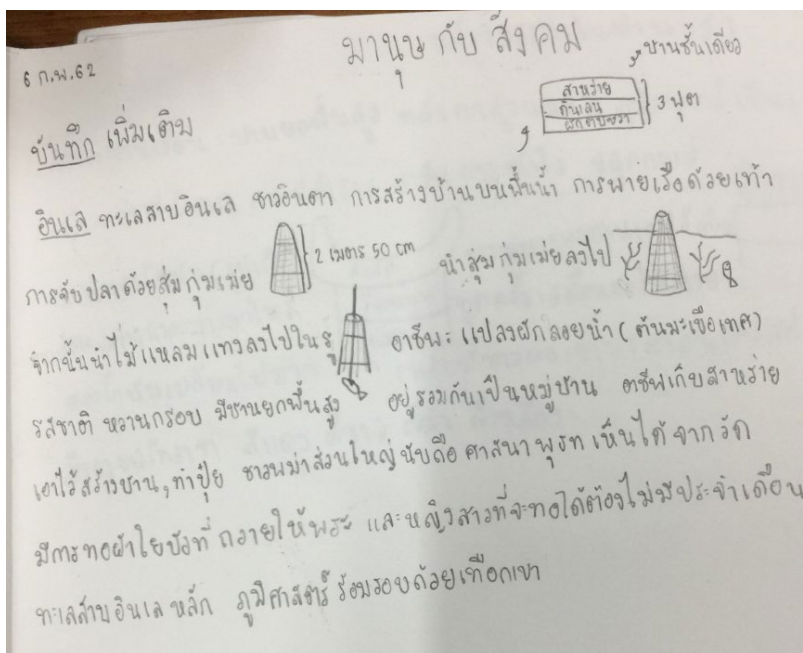 มานุษ กับ สังคม
6 ก.พ.62
บ้านชั้นเดียว
สาหร่าย
ดินเลน
ผักตบชวา
3 ฟุต
บันทึก เพิ่มเติม
อินเล ทะเลสาบอินเล ชาวอินตา การสร้างบ้านบนพื้นน้ำ การพายเรือด้วยเท้า
การจับปลาด้วยสุ่ม กุ่มเม่ย 2 เมตร 50 cm นำสุ่มกุ่มเม่ยลงไป
จากนั้นนำไม้แหลมแทงลงไปในรู อาชีพ: แปลงผักลอยน้ำ (ต้นมะเขือเทศ)
รสชาติ หวานกรอบ มีชานยกพื้นสูง อยู่รวมกันเป็นหมู่บ้าน อาชีพเก็บสาหร่าย
เอาไว้สร้างบ้าน, ทำปุ๋ย ชาวพม่าส่วนใหญ่นับถือ ศาสนา พุธท เห็นได้จากวัด
มีการทอผ้าใยบัวที่ ถวายให้พระ และหญิงสาวที่จะทอได้ต้องไม่มีประจำเดือน
ทะเลสาบอินเล หลัก ภูมิศาสตร์ ร้อมรอบด้วยเทือกเขา